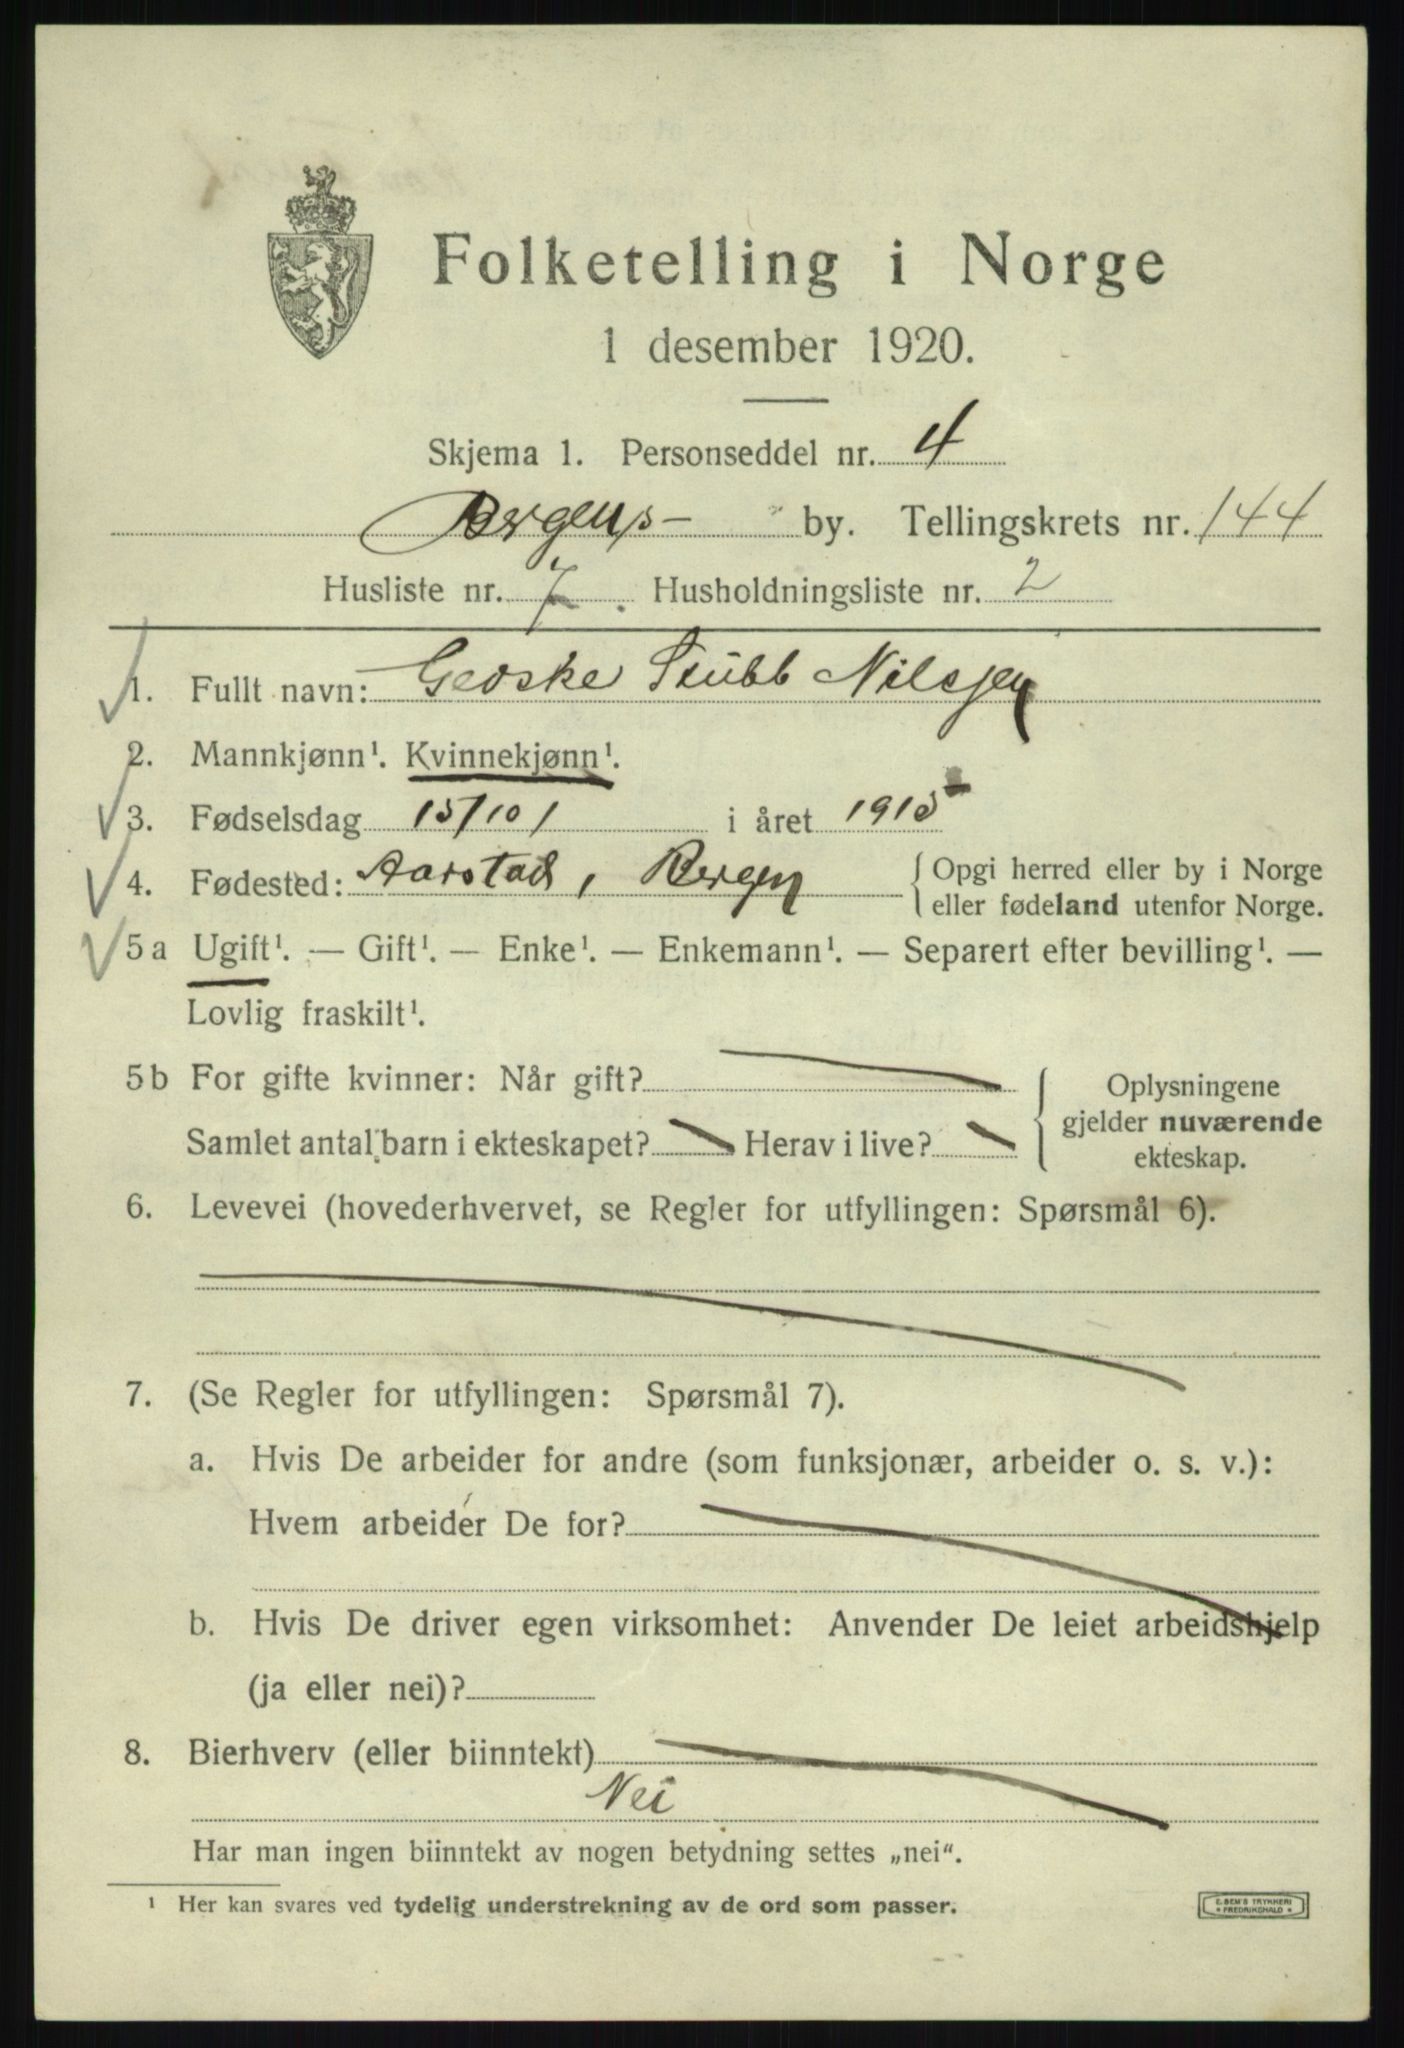 Folketelling i Norge
1 desember 1920.
Skjema 1. Personseddel nr. 4
Bergens by. Tellingskrets nr. 144
Husliste nr. 7. Husholdningsliste nr. 2
1. Fullt navn: Stubb Nilsen
2. Mannkjønn¹. Kvinnekjønn¹.
3. Fødselsdag 15/10 / i året 1915
4. Fødested: Aarstad, Bergen { Opgi herred eller by i Norge
eller fødeland utenfor Norge.
5 a Ugift¹. — Gift¹. — Enke¹. — Enkemann¹. — Separert efter bevilling¹. —
Lovlig fraskilt¹.
5 b For gifte kvinner: Når gift? { Oplysningene
gjelder nuværende
Samlet antal barn i ekteskapet? Herav i live?
ekteskap.
6. Levevei (hovederhvervet, se Regler for utfyllingen: Spørsmål 6).
7. (Se Regler for utfyllingen: Spørsmål 7).
a. Hvis De arbeider for andre (som funksjonær, arbeider o. s. v.):
Hvem arbeider De for?
b. Hvis De driver egen virksomhet: Anvender De leiet arbeidshjelp
(ja eller nei)?
8. Bierhverv (eller biinntekt)
Nei
Har man ingen biinntekt av nogen betydning settes „nei“.
¹ Her kan svares ved tydelig understrekning av de ord som passer.
E. SEM'S TRYKKERI
* FREDRIKSHALD *